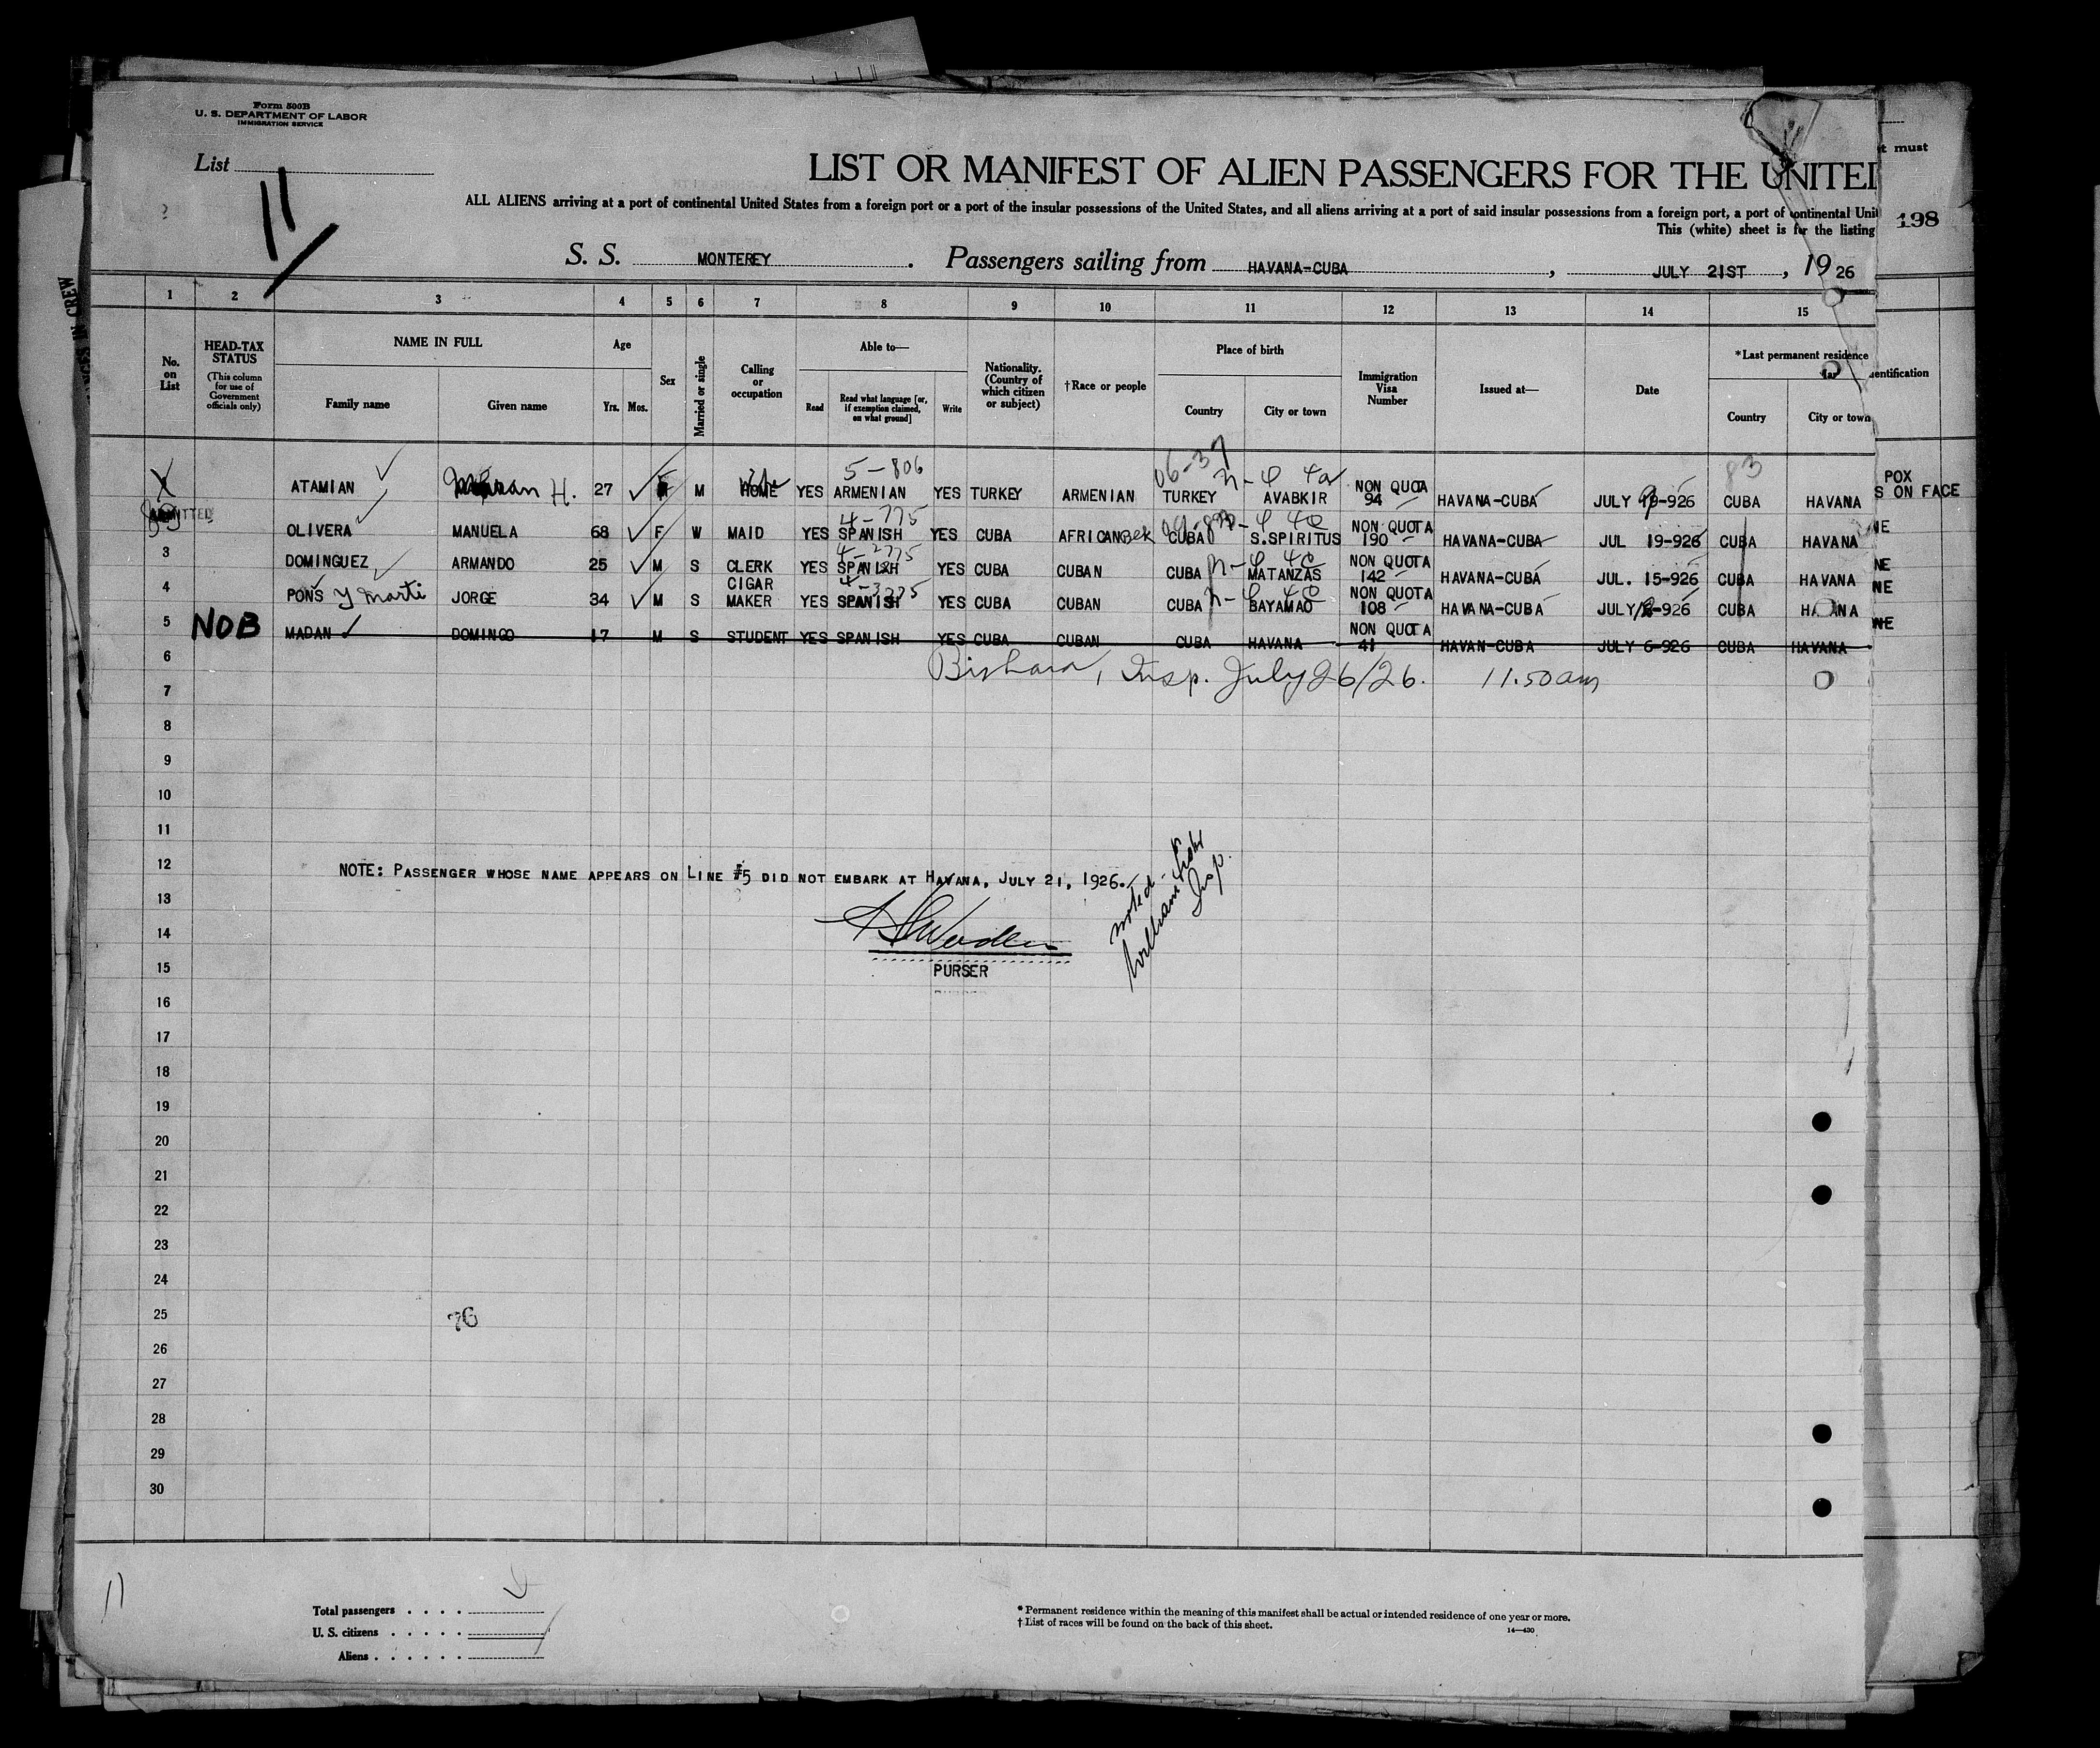 Form 500B
U. S. DEPARTMENT OF LABOR
IMMIGRATION SERVICE
List
11
LIST OR MANIFEST OF ALIEN PASSENGERS FOR THE UNITED
t must
ALL ALIENS arriving at a port of continental United States from a foreign port or a port of the insular possessions of the United States, and all aliens arriving at a port of said insular possessions from a foreign port, a port of continental Unit
This (white) sheet is for the listing
198
S. S. MONTEREY. Passengers sailing from HAVANA-CUBA, JULY 21ST, 1926
1 2 3 4 5 6 7 8 9 10 11 12 13 14 15
No. on List
HEAD-TAX STATUS
(This column for use of Government officials only)
NAME IN FULL
Family name
Given name
Age
Yrs. Mos.
Sex
Married or single
Calling or occupation
Able to—
Read
Read what language [or, if exemption claimed, on what ground]
Write
Nationality. (Country of which citizen or subject)
†Race or people
Place of birth
Country
City or town
Immigration Visa Number
Issued at—
Date
*Last permanent residence
Country
City or town
entification
5-806 06-37 n-4 4a 83
ATAMIAN H. 27 F M HOME YES ARMENIAN YES TURKEY ARMENIAN TURKEY AVABKIR NON QUOTA 94 HAVANA-CUBA JULY 19-926 CUBA HAVANA
POX
S ON FACE
ADMITTED
4-775
OLIVERA MANUELA 68 F W MAID YES SPANISH YES CUBA AFRICAN BLK CUBA S.SPIRITUS NON QUOTA 190 HAVANA-CUBA JUL 19-926 CUBA HAVANA
NE
4-2775 n-4 4c
3 DOMINGUEZ ARMANDO 25 M S CLERK YES SPANISH YES CUBA CUBAN CUBA MATANZAS NON QUOTA 142 HAVANA-CUBA JUL. 15-926 CUBA HAVANA
NE
4-3775 n-4 4c
4 PONS y Marti JORGE 34 M S CIGAR MAKER YES SPANISH YES CUBA CUBAN CUBA BAYAMAO NON QUOTA 108 HAVANA-CUBA JULY -926 CUBA HAVANA
NE
5 NOB MADAN DOMINGO 17 M S STUDENT YES SPANISH YES CUBA CUBAN CUBA HAVANA NON QUOTA 41 HAVAN-CUBA JULY 6-926 CUBA HAVANA
NE
6
Insp. July 26/26. 11.50 am
7
8
9
10
11
12
NOTE: PASSENGER WHOSE NAME APPEARS ON LINE #5 DID NOT EMBARK AT HAVANA, JULY 21, 1926.
noted
William
Insp.
13
14
15
PURSER
16
17
18
19
20
21
22
23
24
25
76
26
27
28
29
30
11
Total passengers
U. S. citizens
Aliens
* Permanent residence within the meaning of this manifest shall be actual or intended residence of one year or more.
† List of races will be found on the back of this sheet.
14—430